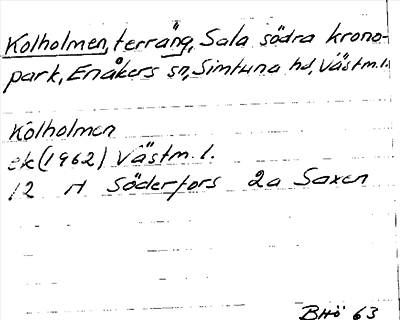 Kolholmen, terräng, Sala södra krono-
park, Enåkers sn, Simtuna hd, Västm.l.
Kolholmen
ek (1962) Västm. l.
12 H Söderfors 2a Saxen
BHö 63